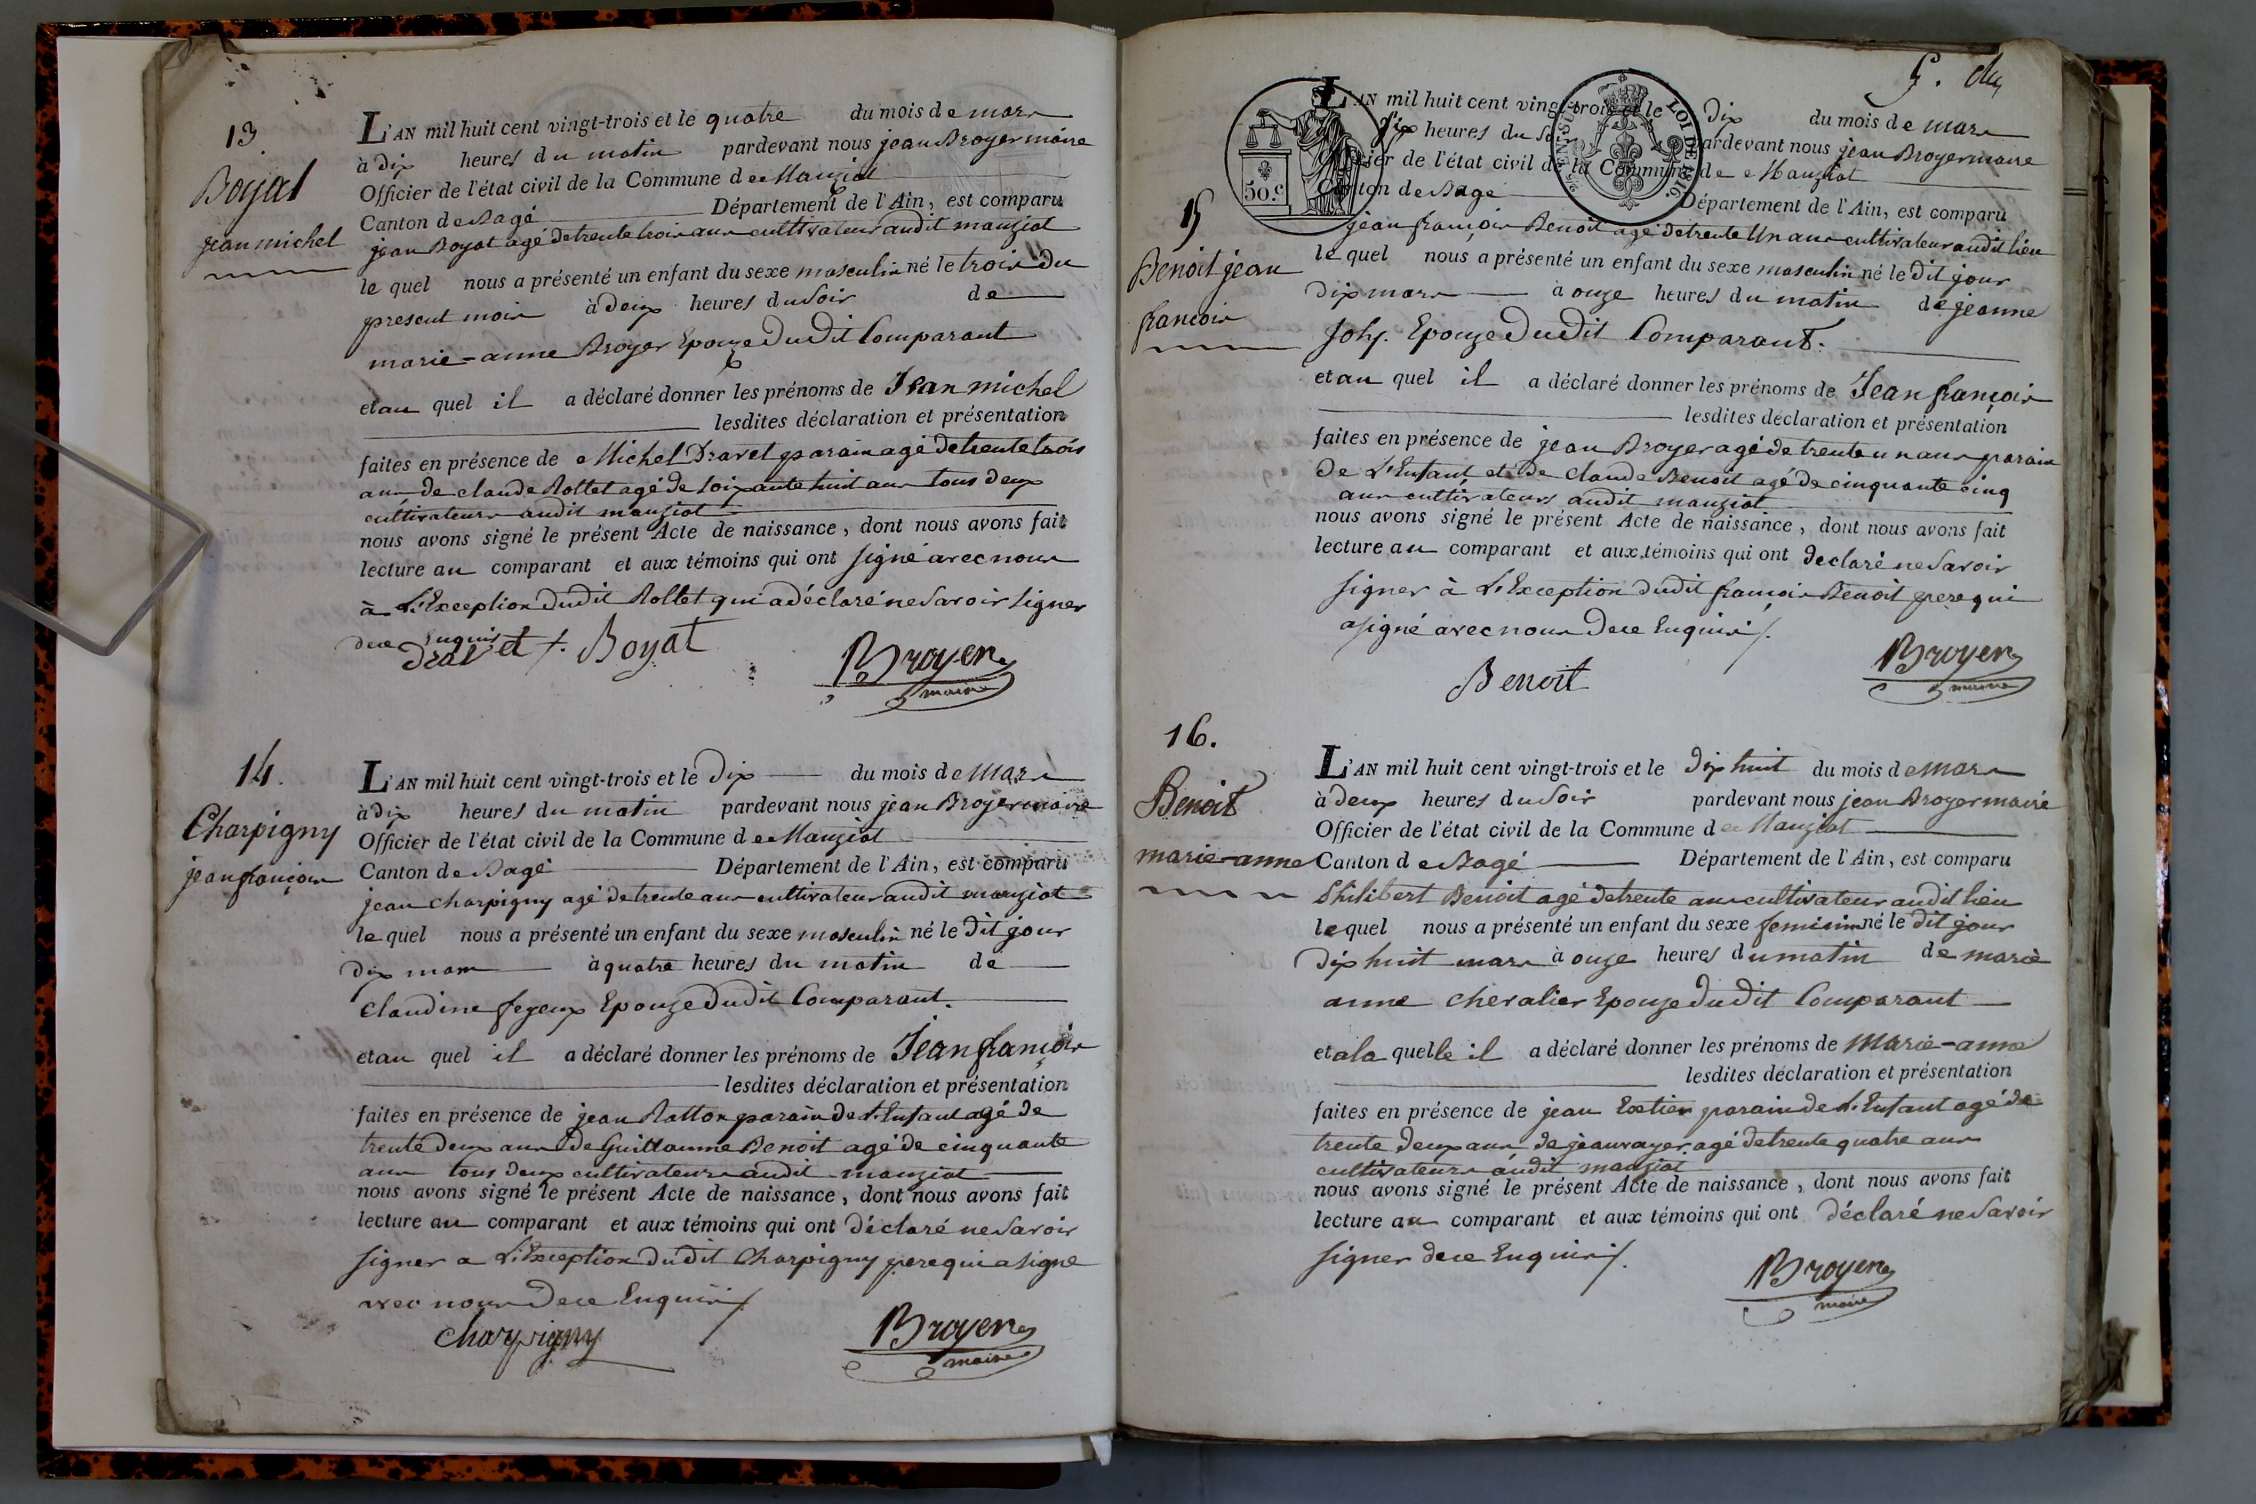 13.
Boyat
jean michel
L'AN mil huit cent vingt-trois et le quatre du mois de mars
à dix heures du matin pardevant nous jean Broyer maire
Officier de l'état civil de la Commune de Manziat
Canton de Bagé Département de l'Ain, est comparu
jean Boyat agé de trente trois ans cultivateur audit manziat
le quel nous a présenté un enfant du sexe masculin né le trois du
present mois à deux heures du Soir de
marie-anne Broyer Epouze Dudit Comparant
et au quel il a déclaré donner les prénoms de Jean michel
lesdites déclaration et présentation
faites en présence de Michel Dravet parain agé de trente trois
ans de claude Rollet agé de Soixante huit ans tous deux
cultivateurs audit manziat
nous avons signé le présent Acte de naissance, dont nous avons fait
lecture au comparant et aux témoins qui ont signé avec nous
à L'Exception Dudit Rollet qui a déclaré ne Savoir Signer
de ce Enquis
Dravet Boyat Broyer
maire
14.
Charpigny
jean françois
L'AN mil huit cent vingt-trois et le Dix du mois de Mars
à dix heures du matin pardevant nous jean Broyer maire
Officier de l'état civil de la Commune de Manziat
Canton de Bagé Département de l'Ain, est comparu
jean charpigny agé de trente ans cultivateur audit manziat
le quel nous a présenté un enfant du sexe masculin né le Dit jour
Dix mars à quatre heures du matin de
Claudine feyeux Epouze Dudit Comparant.
et au quel il a déclaré donner les prénoms de Jean françois
lesdites déclaration et présentation
faites en présence de jean Ratton parain de L'Enfant agé de
trente deux ans de Guillaume Benoit agé de cinquante
ans tous deux cultivateurs audit manziat
nous avons signé le présent Acte de naissance, dont nous avons fait
lecture au comparant et aux témoins qui ont Déclaré ne Savoir
Signer a L'Exception Dudit Charpigny pere qui a Signé
avec nous De ce Enquis
charpigny Broyer
maire
5.
15
Benoit jean
françois
50 c
LOI DE 1816.
L'AN mil huit cent vingt-trois et le Dix du mois de mars
Six heures du Soir pardevant nous jean Broyer maire
Officier de l'état civil de la Commune de Manziat
Canton de Bagé Département de l'Ain, est comparu
jean françois Benoit agé de trente Un ans cultivateur audit lieu
le quel nous a présenté un enfant du sexe masculin né le Dit jour
Dix mars à onze heures du matin de jeanne
Joly. Epouze Dudit Comparant.
et au quel il a déclaré donner les prénoms de Jean françois
lesdites déclaration et présentation
faites en présence de jean Broyer agé de trente un ans parain
de L'Enfant et de Claude Benoit agé de cinquante cinq
ans cultivateurs audit manziat
nous avons signé le présent Acte de naissance, dont nous avons fait
lecture au comparant et aux témoins qui ont declaré ne Savoir
Signer à L'Exception dudit françois Benoit pere qui
a signé avec nous De ce Enquis
Benoit Broyer
maire
16.
Benoit
marie-anne
L'AN mil huit cent vingt-trois et le Dix huit du mois de mars
à deux heures du Soir pardevant nous jean Broyer maire
Officier de l'état civil de la Commune de Manziat
Canton de Bagé Département de l'Ain, est comparu
Philibert Benoit agé de trente ans cultivateur audit lieu
le quel nous a présenté un enfant du sexe feminin né le Dit jour
Dix huit mars à onze heures du matin de marie
anne chevalier Epouze Dudit Comparant
et a la quelle il a déclaré donner les prénoms de Marie-anne
lesdites déclaration et présentation
faites en présence de jean parain de L'Enfant agé de
trente deux ans de jean agé de trente quatre ans
cultivateurs audit manziat
nous avons signé le présent Acte de naissance, dont nous avons fait
lecture au comparant et aux témoins qui ont déclaré ne Savoir
Signer de ce Enquis
Broyer
maire